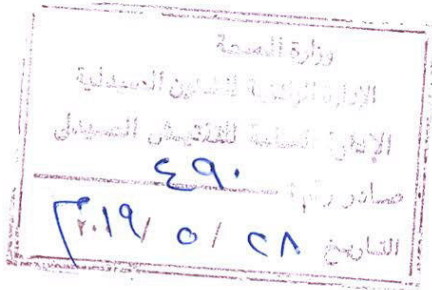 وزارة الصحة
الإدارة المركزية للشئون الصيدلية
الإدارة العامة للتفتيش الصيدلي
صادر رقم ٤٩٠
التاريخ ٢٨ / ٥ / ٢٠١٩